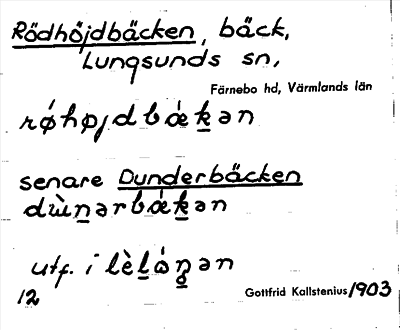 Rödhöjdbäcken, bäck,
Lungsunds sn,
Färnebo hd, Värmlands län
rǿhøjdbæ̀k̲ən
senare Dunderbäcken
dɯ̀n̲ərbǽk̲ən
utf. i lèl̲ón̲ən
12
Gottfrid Kallstenius 1903